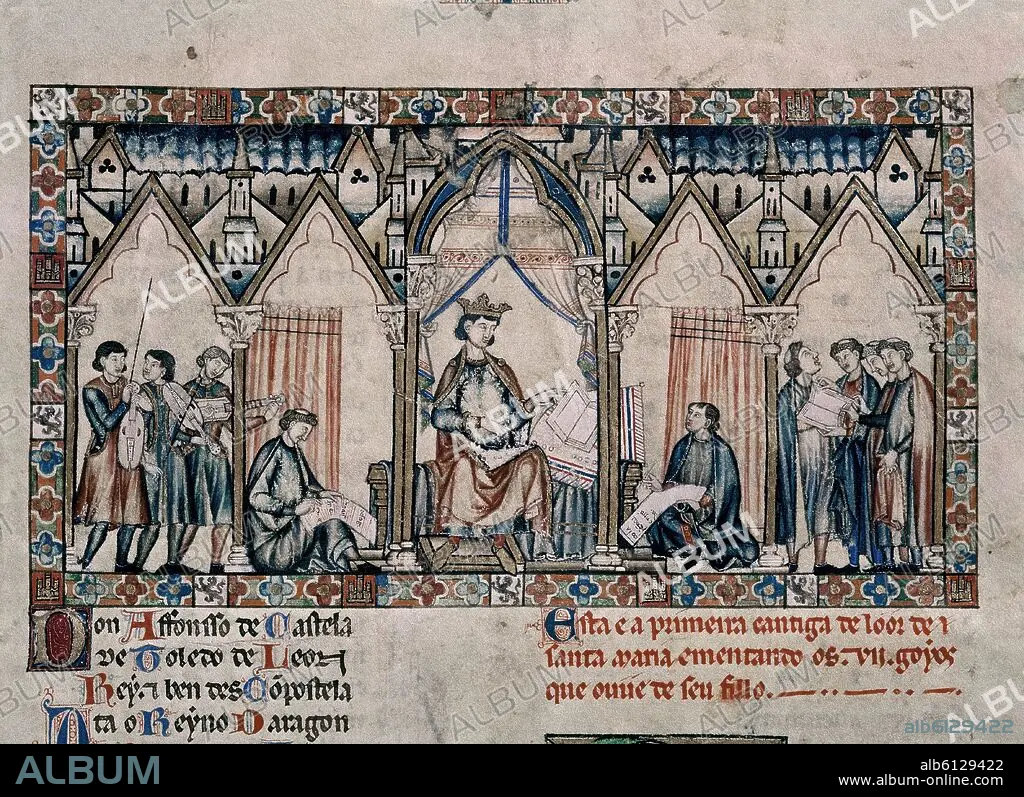 Don Affonsso de Castela
de Toledo de Leon
Rey ⁊ ben des Cõpostela
Ata o Reyno Daragon
Esta e a primeira cantiga de loor de
santa maria ementando os .vii. goyos
que ouue de seu fillo.
ALBUM
alb6129422
ALBUM
alb6129422
www.album-online.com